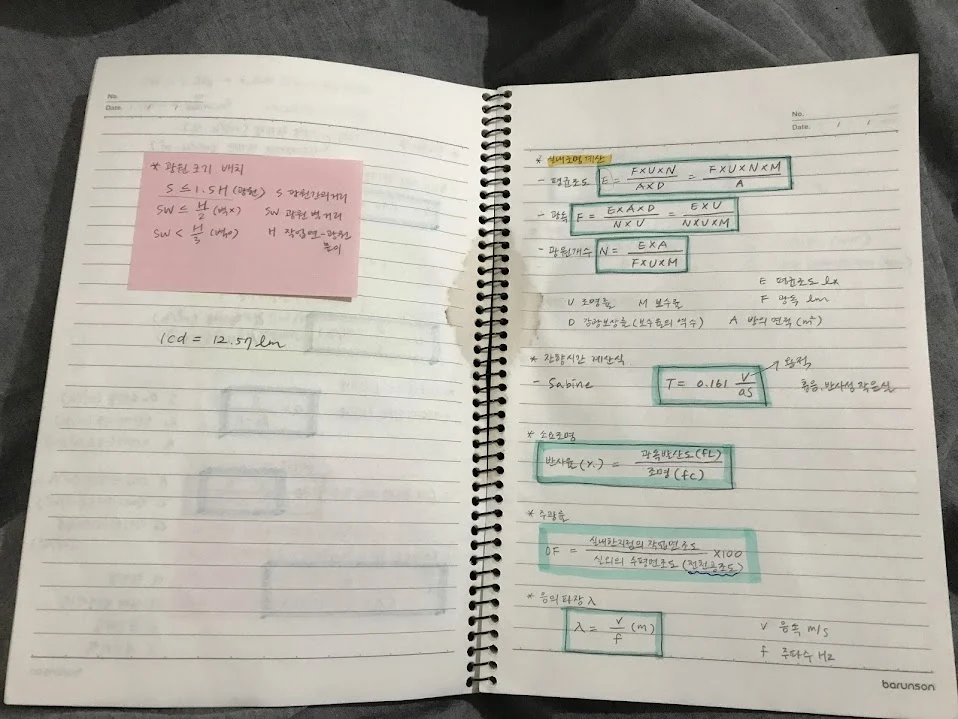 No.
Date.
* 광원 크기 배치
S ≤ 1.5H (광원) S 광원간의거리
SW ≤ H/2 (벽x) SW 광원 벽거리
SW < H/3 (벽o) H 작업면-광원
높이
1cd = 12.57lm
No.
Date. / /
* 실내조명 계산
- 평균조도 E = F×U×N / A×D = F×U×N×M / A
- 광속 F = E×A×D / N×U = E×U / N×U×M
- 광원개수 N = E×A / F×U×M
E 평균조도 lx
U 조명율 M 보수율 F 광속 lm
D 감광보상율 (보수율의 역수) A 방의 면적 (m²)
* 잔향시간 계산식
- Sabine T = 0.161 V/aS → 용적
흡음, 반사성 작은실
* 소요조명
반사율 (%) = 광속발산도 (fL) / 조명 (fc)
* 주광율
DF = 실내한지점의 작업면조도 / 실외의 수평면조도 (전천공조도) ×100
* 음의 파장 λ
λ = v/f (m) V 음속 m/s
f 주파수 Hz
barunson